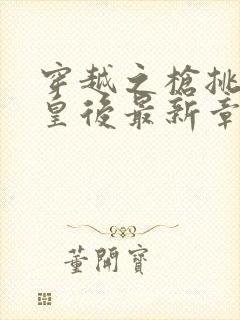 穿越之槍挑
皇後最新章
董開寶